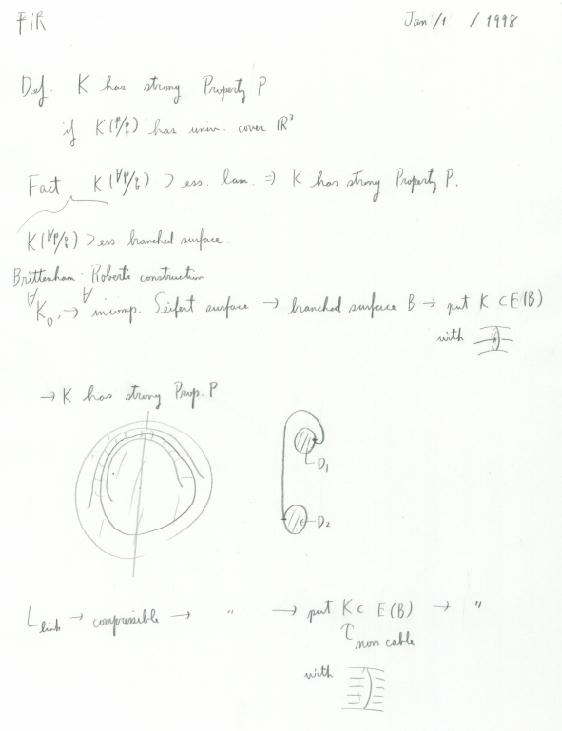 Jan /1 / 1998
Def. K has strong Property P
if K(p/q) has univ. cover ℝ³
Fact K(∀p/q) ⊃ ess. lam. ⇒ K has strong Property P.
K(∀p/q) ⊃ ess branched surface.
Brittenham - Roberts construction
∀K₀, → ∀ incomp. Seifert surface → branched surface B → put K ⊂ E(B)
with
→ K has strong Prop. P
D₁
D₂
L link → compressible → " → put K ⊂ E(B) → "
non cable
with